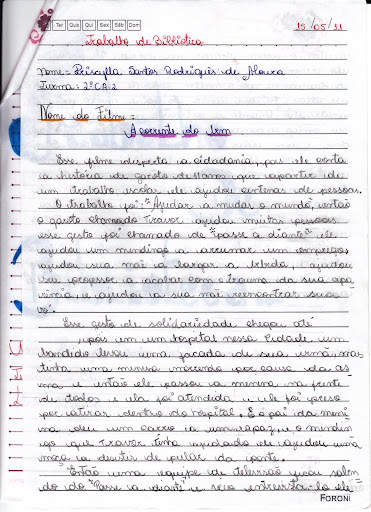 Ter Qua Qui Sex Sáb Dom
15/05/11
Trabalho de Biblioteca
Nome = Priscylla Santos Rodrigues de Moura
Turma: 2º CA2
Nome do Filme =
A corrente do bem
Esse filme desperta a cidadania, pois ele conta
a história de garoto de 11 anos que apartir de
um trabalho escolar ele ajudou centenas de pessoas.
O trabalho foi: "Ajudar a mudar o mundo", então
o garoto chamado Travor ajudou muitas pessoas
esse gesto foi chamado de "passe a diante" ele
ajudou um mendingo a arrumar um emprego,
ajudou sua mãe a largar a bebida, ajudou
seu professor a acabar com o trauma da sua apa
rência, e ajudou a sua mãe reencontrar seu a
vô.
Esse gesto de solidariedade chegou até
pois em um hospital nessa cidade um
bandido levou uma facada de sua irmã, mas
tinha uma menina morrendo por causa da as
ma e então ele passou a menina na frente
de todos e ela foi atendida e ele foi preso
por atirar dentro do hospital. E o pai da meni
na deu um carro a um rapaz, e o mendin
go que Travor tinha ajudado ele ajudou uma
moça a desistir de pular da ponte.
Então uma equipe de televisão ficou saben
do do "Passe a diante" e veio entrevista-lo ele
FORONI